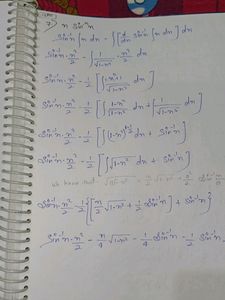 7) x sin⁻¹x
sin⁻¹x ∫x dx - ∫[d/dx sin⁻¹x ∫x dx] dx
sin⁻¹x · x²/2 - ∫ 1/√(1-x²) · x²/2 dx
sin⁻¹x · x²/2 - 1/2 [∫ (1-x²+1)/√(1-x²) dx]
sin⁻¹x · x²/2 - 1/2 [∫ (1-x²)/√(1-x²) dx + ∫ 1/√(1-x²) dx]
sin⁻¹x · x²/2 - 1/2 [∫ (1-x²)^½ dx + sin⁻¹x]
sin⁻¹x · x²/2 - 1/2 [∫ √(1-x²) dx + sin⁻¹x]
we have that
sin⁻¹x · x²/2 - 1/2 {[x/2 √(1-x²) + 1/2 sin⁻¹x] + sin⁻¹x}
sin⁻¹x · x²/2 - x/4 √(1-x²) - 1/4 sin⁻¹x - 1/2 sin⁻¹x